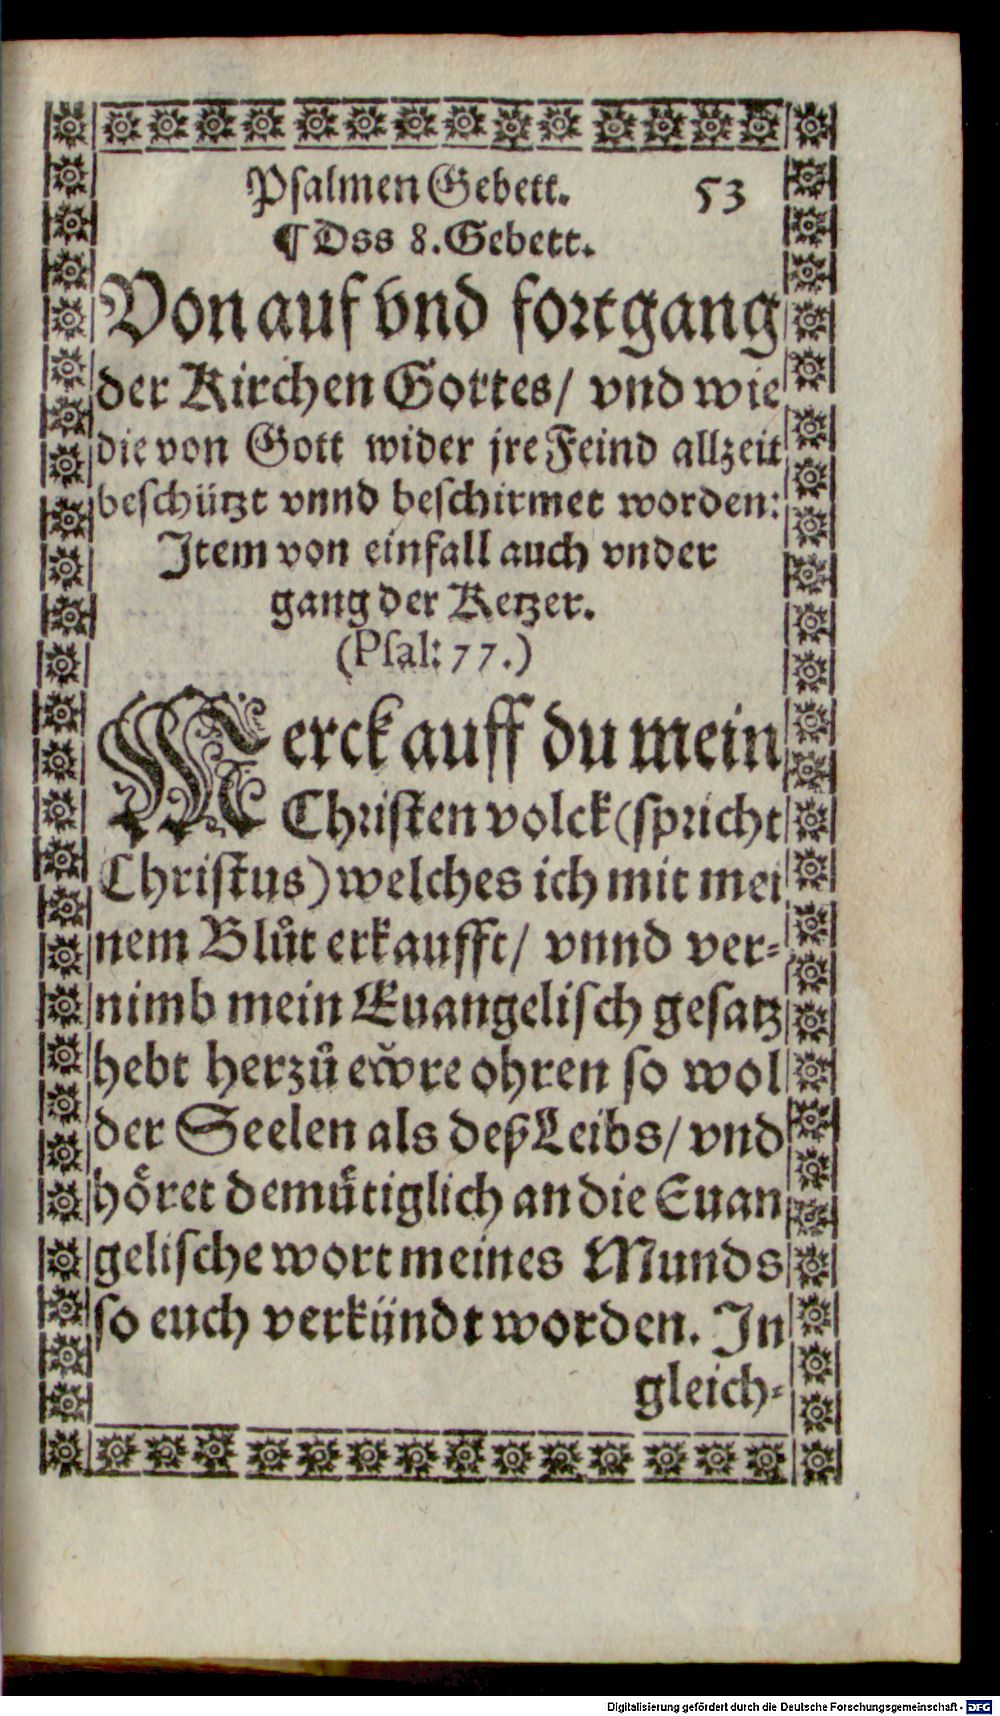 Psalmen Gebett. 53
¶ Dss 8. Gebett.
Von auf vnd fortgang
der Kirchen Gottes/ vnd wie
die von Gott wider jre Feind allzeit
beschützt vnnd beschirmet worden:
Item von einfall auch vnder
gang der Ketzer.
(Psal: 77.)
Merck auff du mein
Christen volck (spricht
Christus) welches ich mit mei
nem Blůt erkaufft/ vnnd ver-
nimb mein Euangelisch gesatz
hebt herzů ewre ohren so wol
der Seelen als deß Leibs/ vnd
höret demütiglich an die Euan
gelische wort meines Munds
so euch verkündt worden. In
gleich-
Digitalisierung gefördert durch die Deutsche Forschungsgemeinschaft - DFG